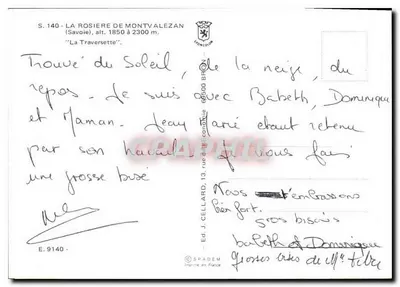 S. 140 - LA ROSIERE DE MONTVALEZAN
(Savoie), alt. 1850 à 2300 m.
"La Traversette".
Trouvé du Soleil, de la neige, du
repos. Je suis avec Babeth, Dominique
et Maman. Jean Marie étant retenu
par son travail. Je vous fais
une grosse bise
Nous t'embrassons
bien fort.
gros bisous
babeth et Dominique
Grosses bises de
E. 9140 -
Ed. J. CELLARD, 13, rue
© SPADEM